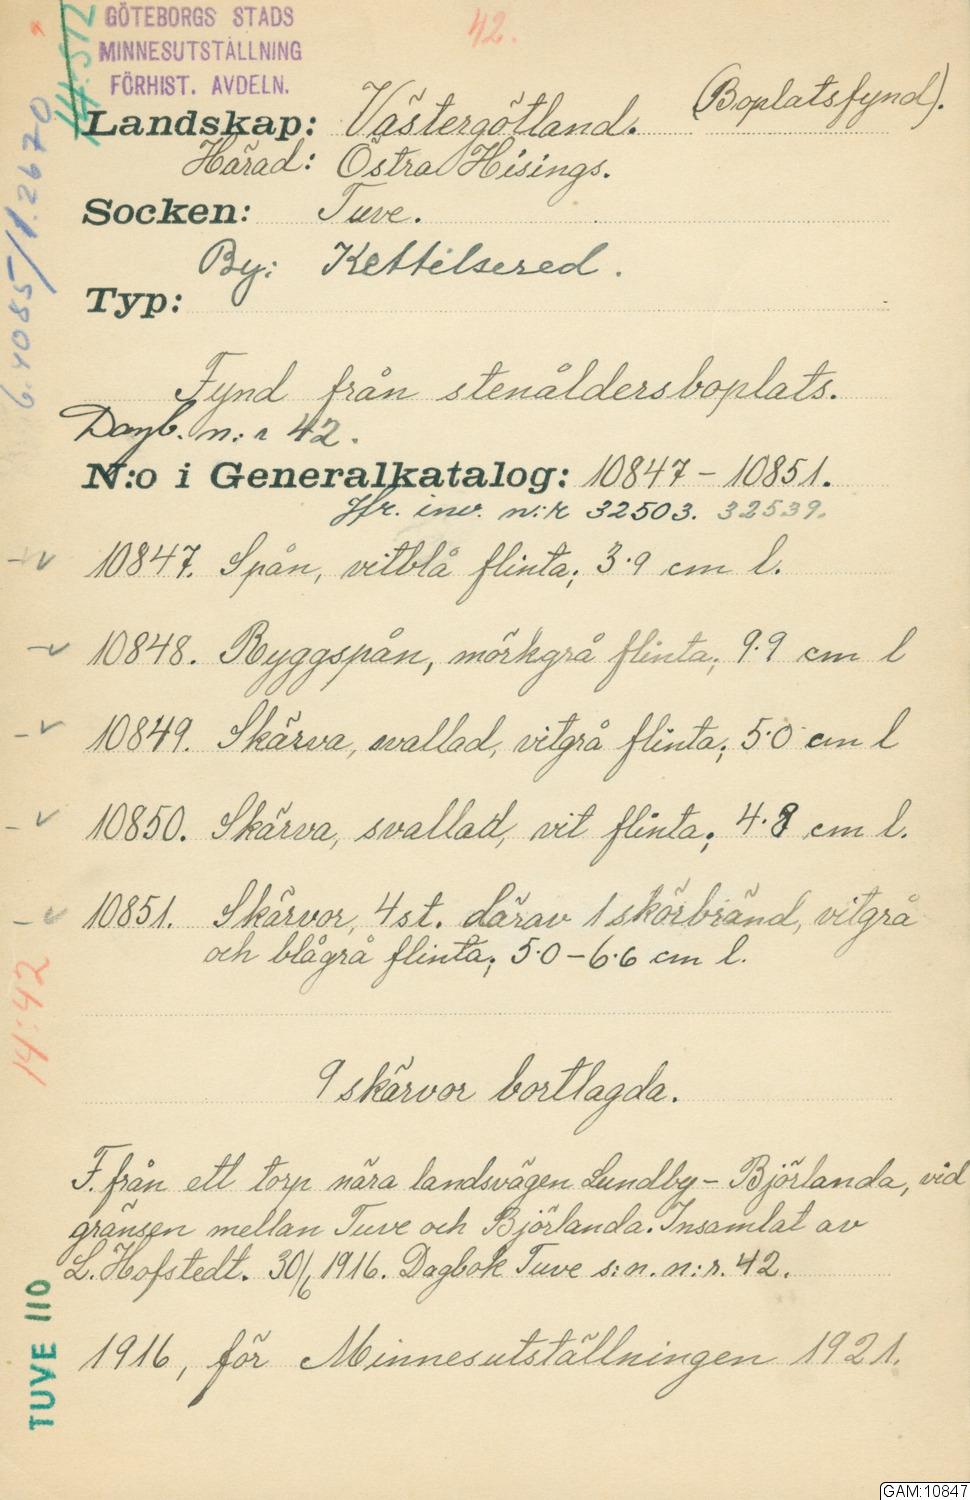 GÖTEBORGS STADS
MINNESUTSTÄLLNING
FÖRHIST. AVDELN.
42.
14:512
6.4085/1.2670
(Boplatsfynd).
Landskap: Västergötland.
Härad: Östra Hisings.
Socken: Tuve.
By: Kettilsered.
Typ:
Fynd från stenåldersboplats.
Dagb. n:r 42.
N:o i Generalkatalog: 10847 - 10851.
Jfr. inv. n:r 32503. 32539.
10847. Spån, vitblå flinta; 3.9 cm l.
10848. Ryggspån, mörkgrå flinta; 9.9 cm l
10849. Skärva, svallad, vitgrå flinta; 5.0 cm l
10850. Skärva, svallad, vit flinta; 4.8 cm l.
10851. Skärvor, 4 st. därav 1 skörbränd, vitgrå
och blågrå flinta; 5.0 - 6.6 cm l.
14:42
9 skärvor bortlagda.
F. från ett torp nära landsvägen Lundby - Björlanda, vid
gränsen mellan Tuve och Björlanda. Insamlat av
L. Hofstedt. 30/6 1916. Dagbok Tuve s:n. n:r. 42.
1916, för Minnesutställningen 1921.
TUVE 110
GAM:10847